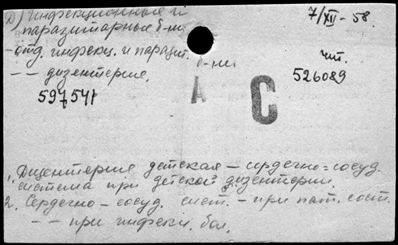 д) инфекционные и
паразитарные б-ни
7/XII - 58.
- отд. инфекц. и паразит.
б-ни
чит.
- - дизентерия.
526089
597571
А С
1. Дизентерия детская - сердечно-сосуд.
система при детской дизентерии.
2. Сердечно-сосуд. сист. - при пат. сост.
- - при инфекц. бол.